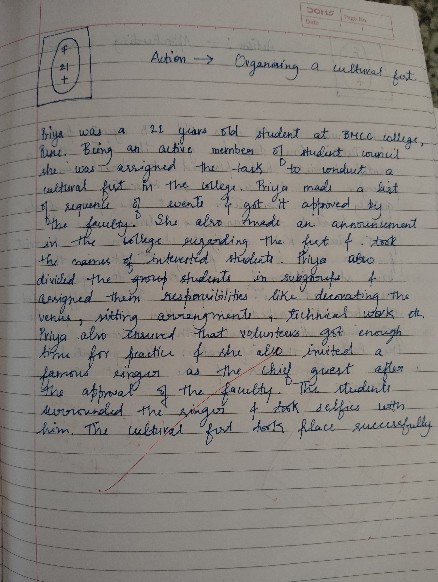 DOMS
Page No.
Date
F
21
+
Action → Organising a cultural fest
Priya was a 21 years old student at BMCC college,
Pune. Being an active member of student council
she was assigned the task to conduct a
cultural fest in the college. Priya made a list
of sequence of events & got it approved by
the faculty. She also made an announcement
in the college regarding the fest & took
the names of interested students. Priya also
divided the group students in subgroups &
assigned them responsibilities like decorating the
venue, sitting arrangments, technical work etc.
Priya also ensured that volunteers got enough
time for practice & she also invited a
famous singer as the chief guest after
the approval of the faculty. The students
surrounded the singer & took selfies with
him. The cultural fest took place successfully